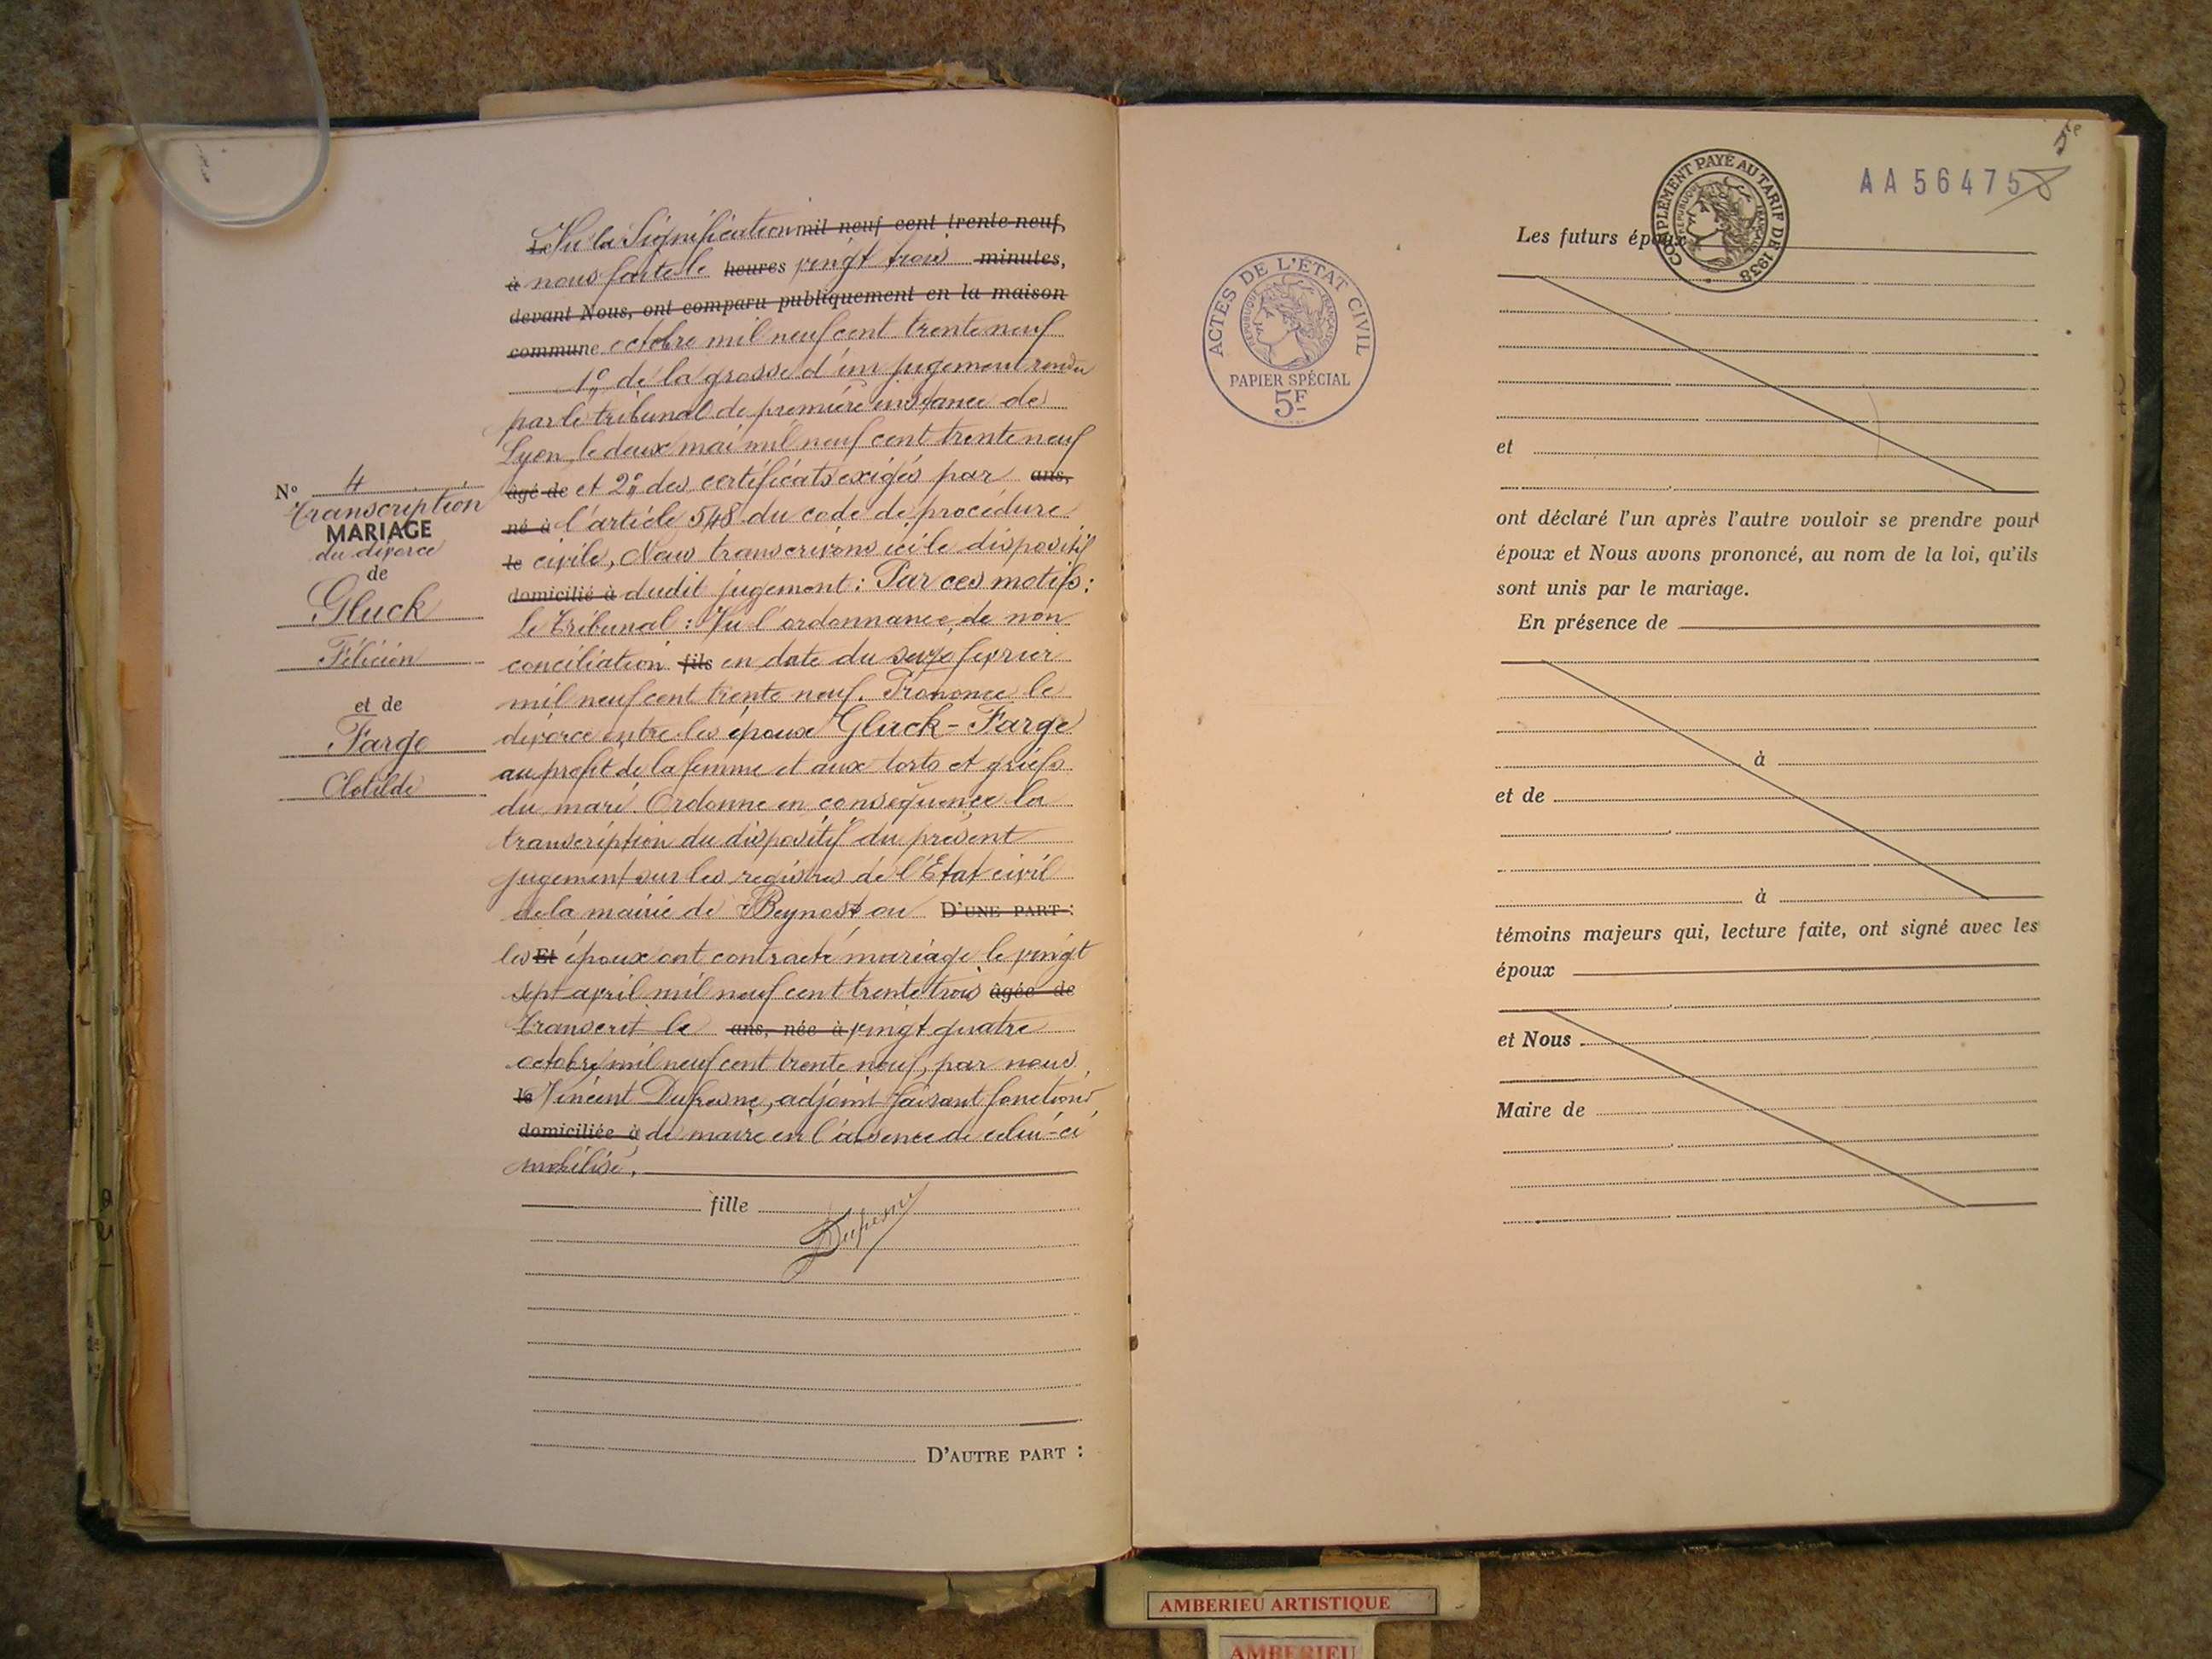 Le Vu la Signification mil neuf cent trente-neuf,
à nous faite le heures vingt trois minutes,
devant Nous, ont comparu publiquement en la maison
commune octobre mil neuf cent trente neuf
1° de la grosse d'un jugement rendu
par le tribunal de première instance de
Lyon, le deux mai mil neuf cent trente neuf
âgé de et 2° des certificats exigés par ans,
né à l'article 548 du code de procédure
le civile, Nous transcrivons ici le dispositif
domicilié à dudit jugement : Par ces motifs :
Le Tribunal : Vu l'ordonnance de non
conciliation fils en date du seize février
mil neuf cent trente neuf. Prononce le
divorce entre les époux Gluck-Farge
au profit de la femme et aux torts et griefs
du mari. Ordonne en conséquence la
transcription du dispositif du présent
jugement sur les registres de l'Etat civil
de la mairie de Beynost ou D'UNE PART :
les Et époux ont contracté mariage le vingt
sept avril mil neuf cent trente trois âgée de
Transcrit le ans, née à vingt quatre
octobre mil neuf cent trente neuf, par nous
le Vincent Dufresne, adjoint faisant fonctions
domiciliée à de maire en l'absence de celui-ci
mobilisé.
fille
Dufresne
D'AUTRE PART :
N° 4
Transcription
MARIAGE
du divorce
de
Gluck
Félicien
et de
Farge
Clotilde
5e
AA 564758
COMPLÉMENT PAYÉ AU TARIF DE 1938
RÉPUBLIQUE FRANÇAISE
ACTES DE L'ÉTAT CIVIL
RÉPUBLIQUE FRANÇAISE
PAPIER SPÉCIAL
5F
Les futurs époux
et
ont déclaré l'un après l'autre vouloir se prendre pour
époux et Nous avons prononcé, au nom de la loi, qu'ils
sont unis par le mariage.
En présence de
à
et de
à
témoins majeurs qui, lecture faite, ont signé avec les
époux
et Nous
Maire de
AMBERIEU ARTISTIQUE
AMBERIEU